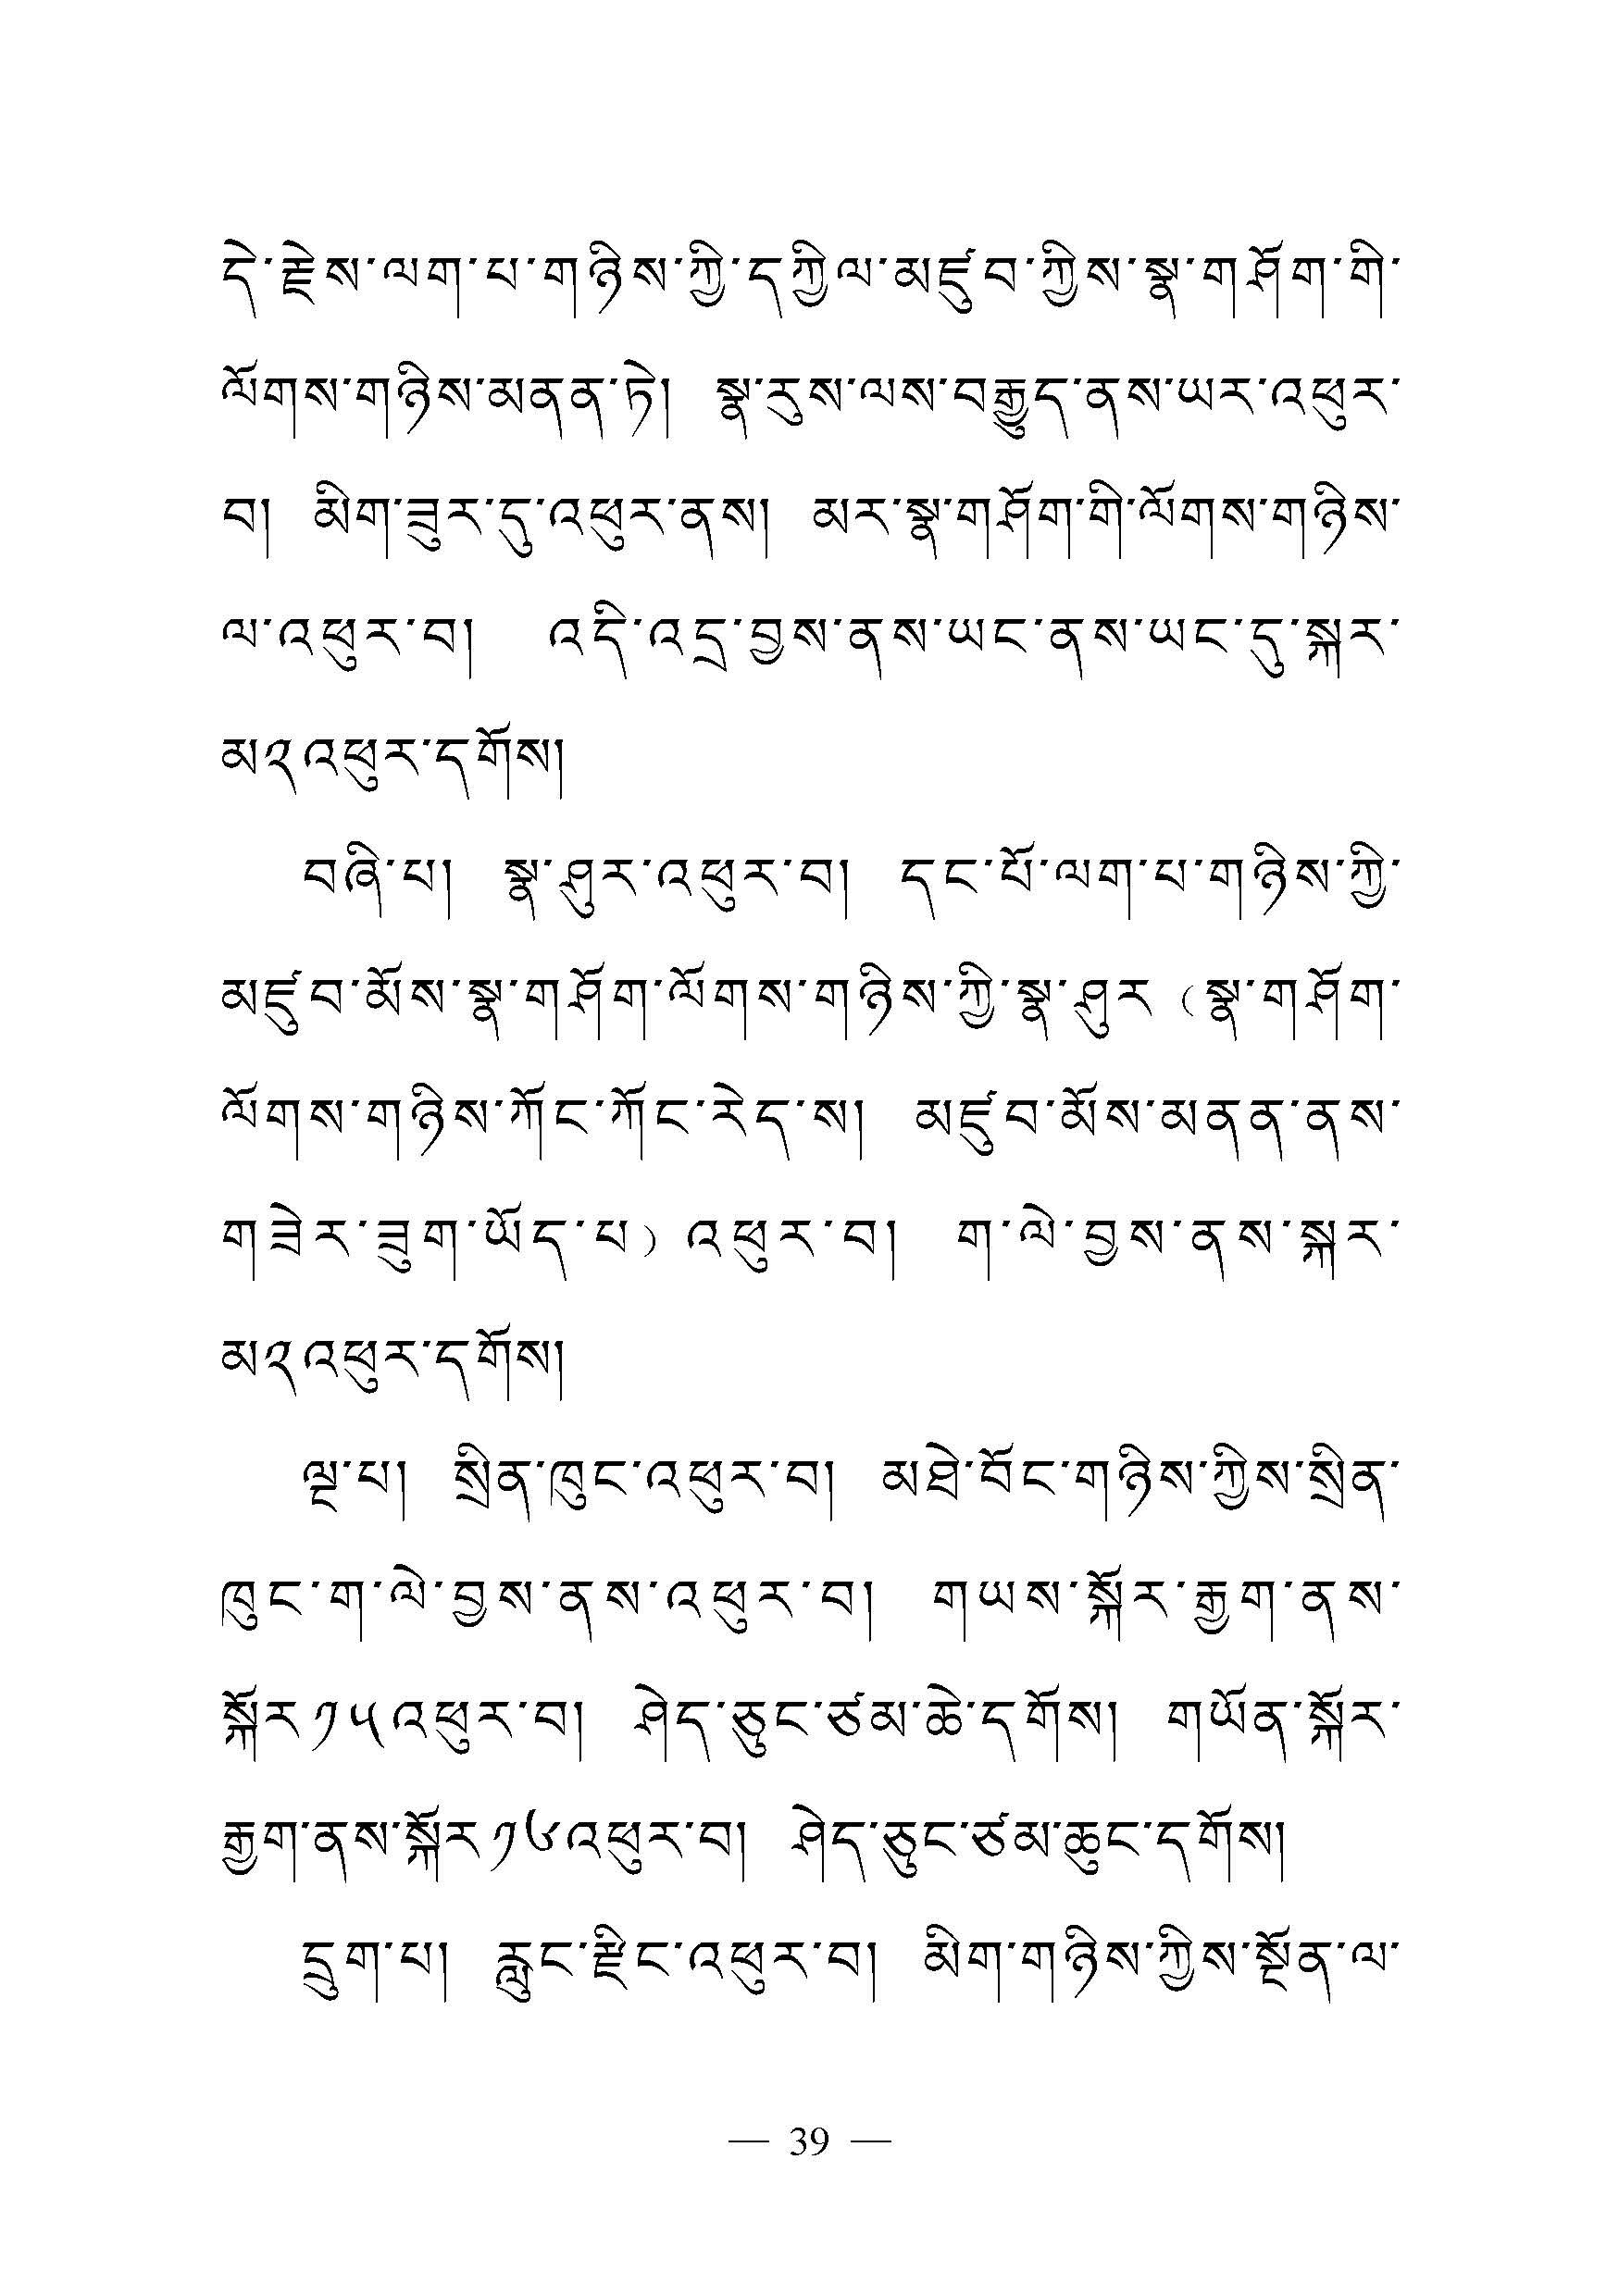 དེ་རྗེས་ལག་པ་གཉིས་ཀྱི་དཀྱིལ་མཛུབ་ཀྱིས་སྣ་གཤོག་གི་
ལོགས་གཉིས་མནན་ཏེ། སྣ་རུས་ལས་བརྒྱུད་ནས་ཡར་འཕུར་
བ། མིག་ཟུར་དུ་འཕུར་ནས། མར་སྣ་གཤོག་གི་ལོགས་གཉིས་
ལ་འཕུར་བ། འདི་འདྲ་བྱས་ནས་ཡང་ནས་ཡང་དུ་སྐར་
མ༢འཕུར་དགོས།
བཞི་པ། སྣ་ཤུར་འཕུར་བ། དང་པོ་ལག་པ་གཉིས་ཀྱི་
མཛུབ་མོས་སྣ་གཤོག་ལོགས་གཉིས་ཀྱི་སྣ་ཤུར (སྣ་གཤོག་
ལོགས་གཉིས་ཀོང་ཀོང་རེད་ས། མཛུབ་མོས་མནན་ནས་
གཟེར་ཟུག་ཡོད་པ) འཕུར་བ། ག་ལེ་བྱས་ནས་སྐར་
མ༢འཕུར་དགོས།
ལྔ་པ། སྲིན་ཁུང་འཕུར་བ། མཐེ་བོང་གཉིས་ཀྱིས་སྲིན་
ཁུང་ག་ལེ་བྱས་ནས་འཕུར་བ། གཡས་སྐོར་རྒྱག་ནས་
སྐོར༡༥འཕུར་བ། ཤེད་ཅུང་ཙམ་ཆེ་དགོས། གཡོན་སྐོར་
རྒྱག་ནས་སྐོར༡༦འཕུར་བ། ཤེད་ཅུང་ཙམ་ཆུང་དགོས།
དྲུག་པ། རླུང་རྫིང་འཕུར་བ། མིག་གཉིས་ཀྱིས་སྔོན་ལ་
— 39 —